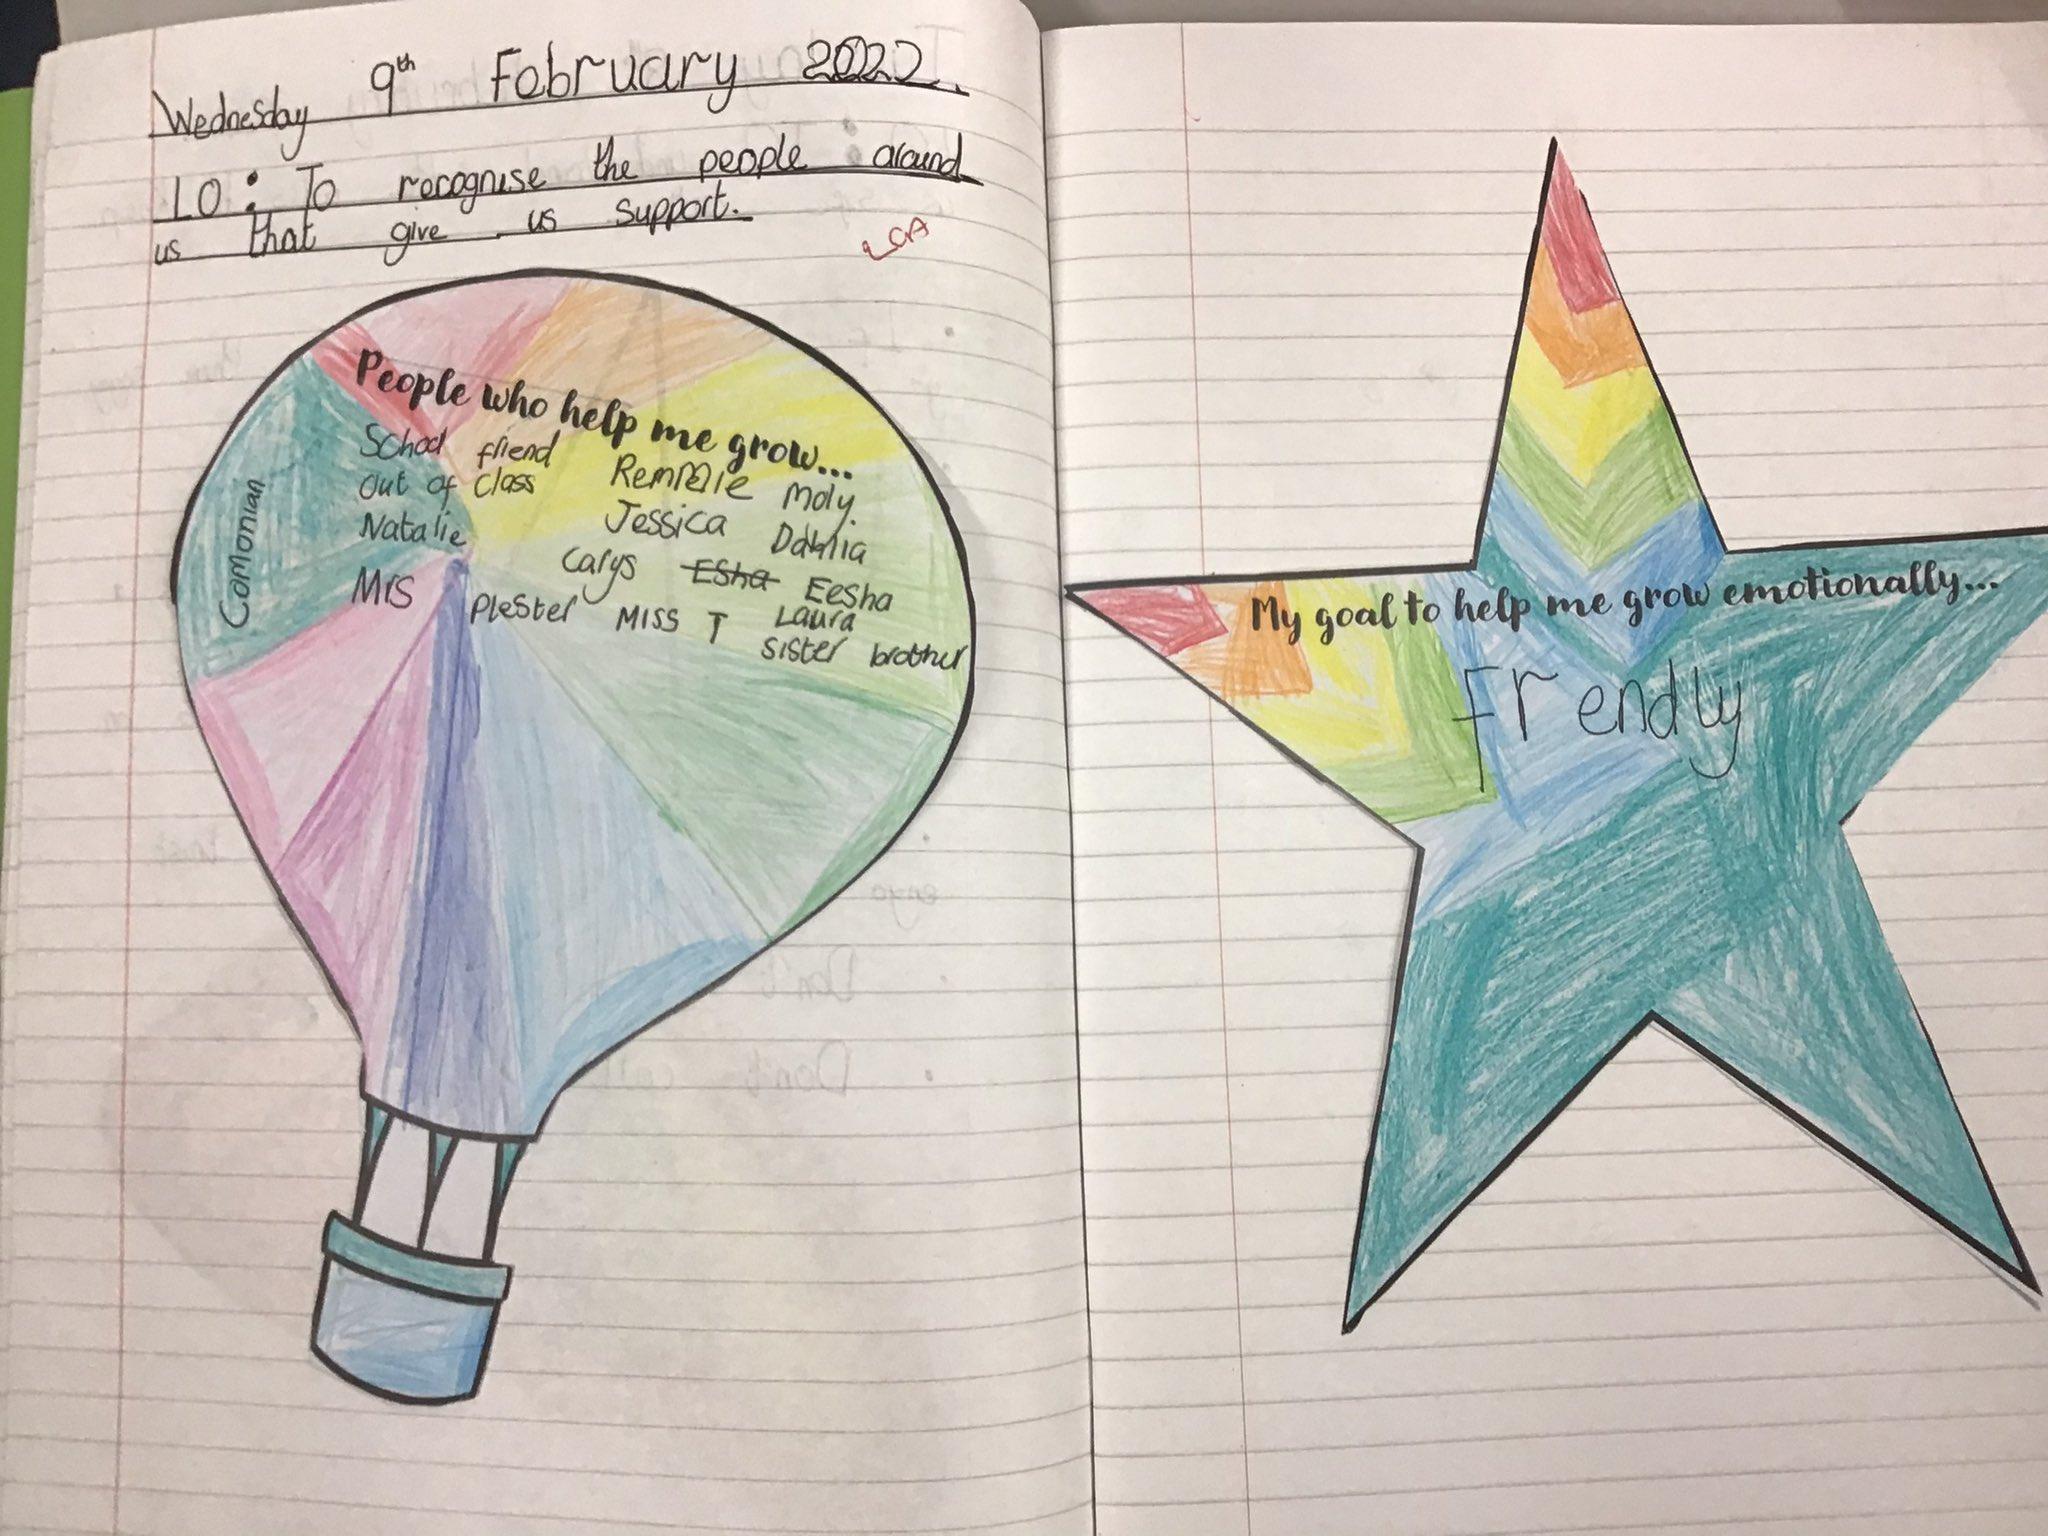 Wednesday 9th February 2022.
LO: To recognise the people around
us that give us support.
LCA
People who help me grow...
School friend
out of class
Natalie
Remmie Moly.
Jessica Dahlia
Carys Esha Eesha
Mrs Plester Miss T Laura
sister brother
Comonian
My goal to help me grow emotionally...
Frendly
Don't
Don't call